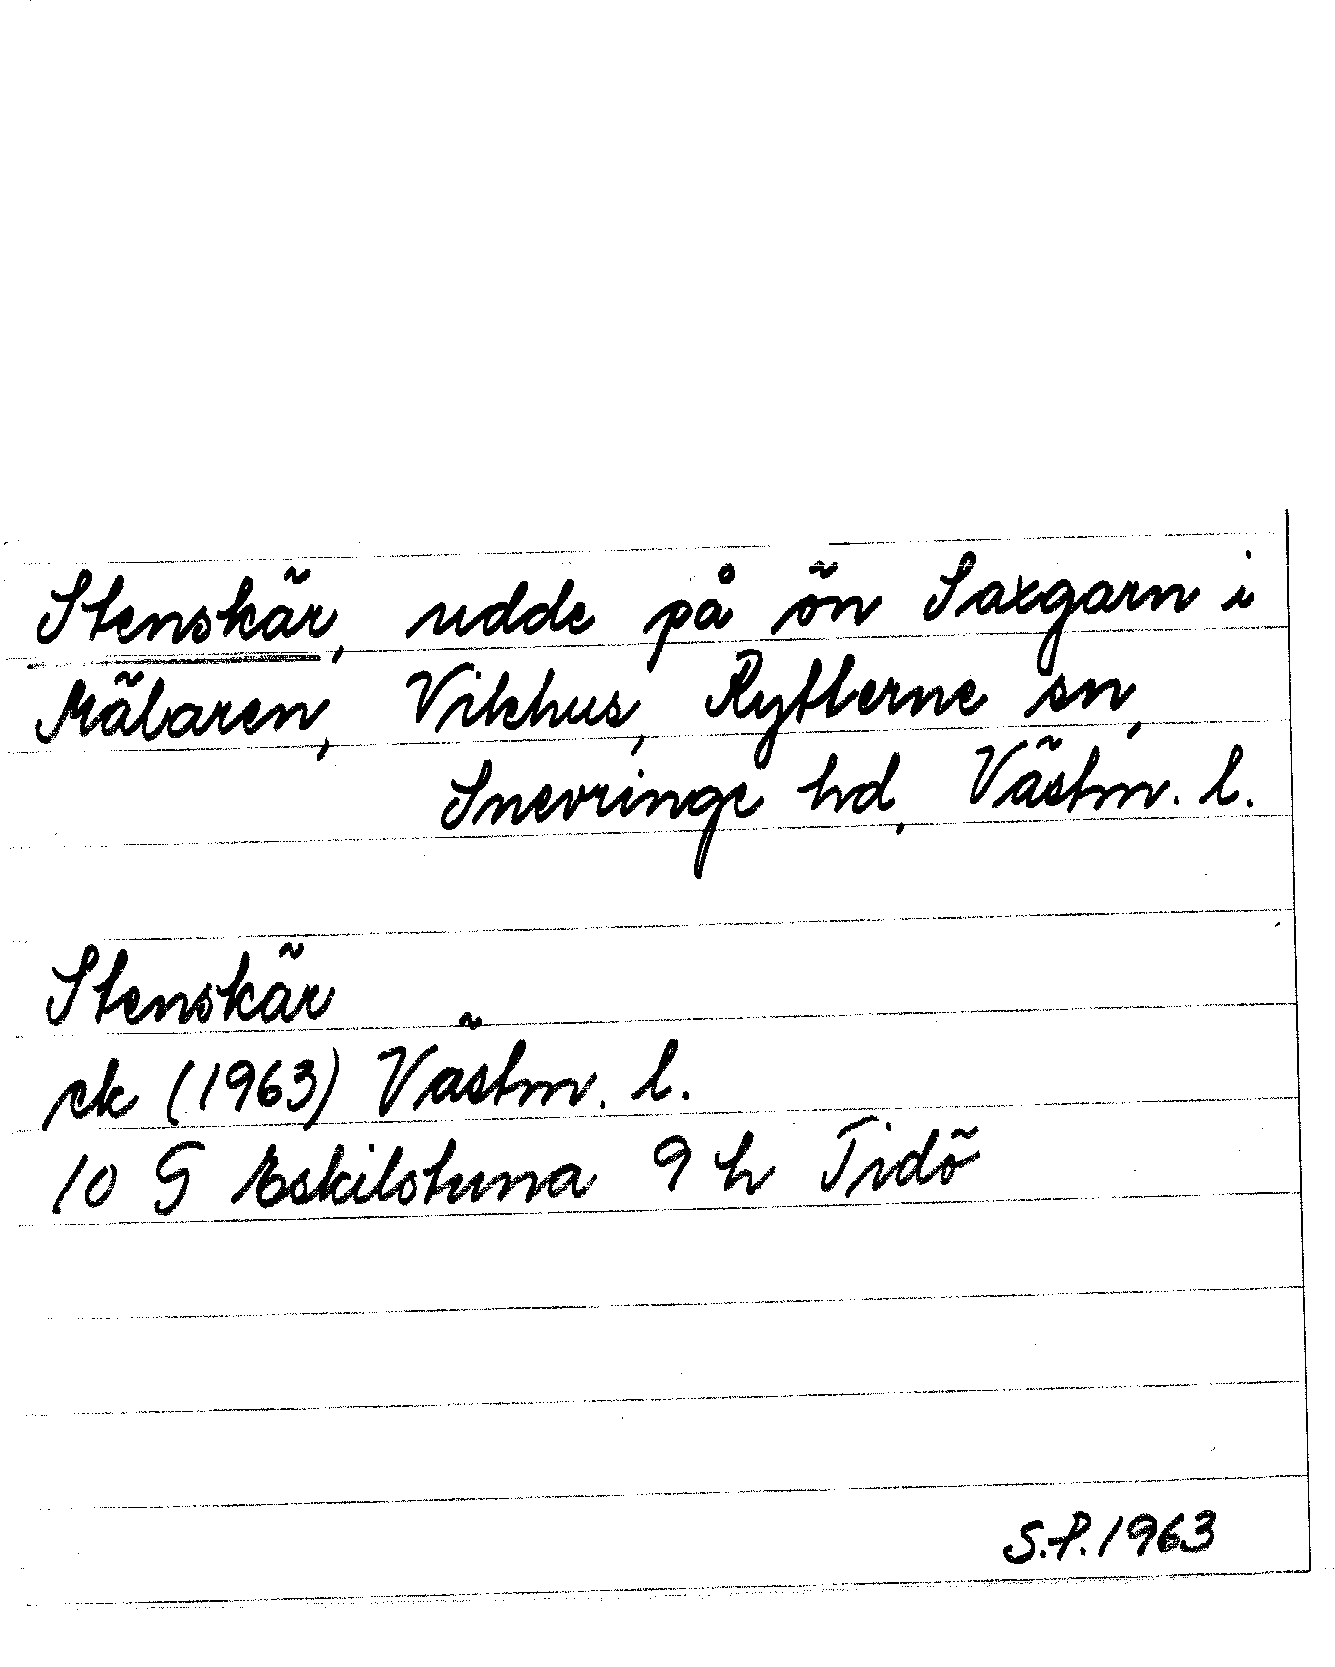 Stenskär, udde på ön Saxgarn i
Mälaren, Vikhus, Rytterne sn,
Snevringe hd, Västm. l.
Stenskär
ek (1963) Västm. l.
10 G Eskilstuna 9 h Tidö
S.P. 1963